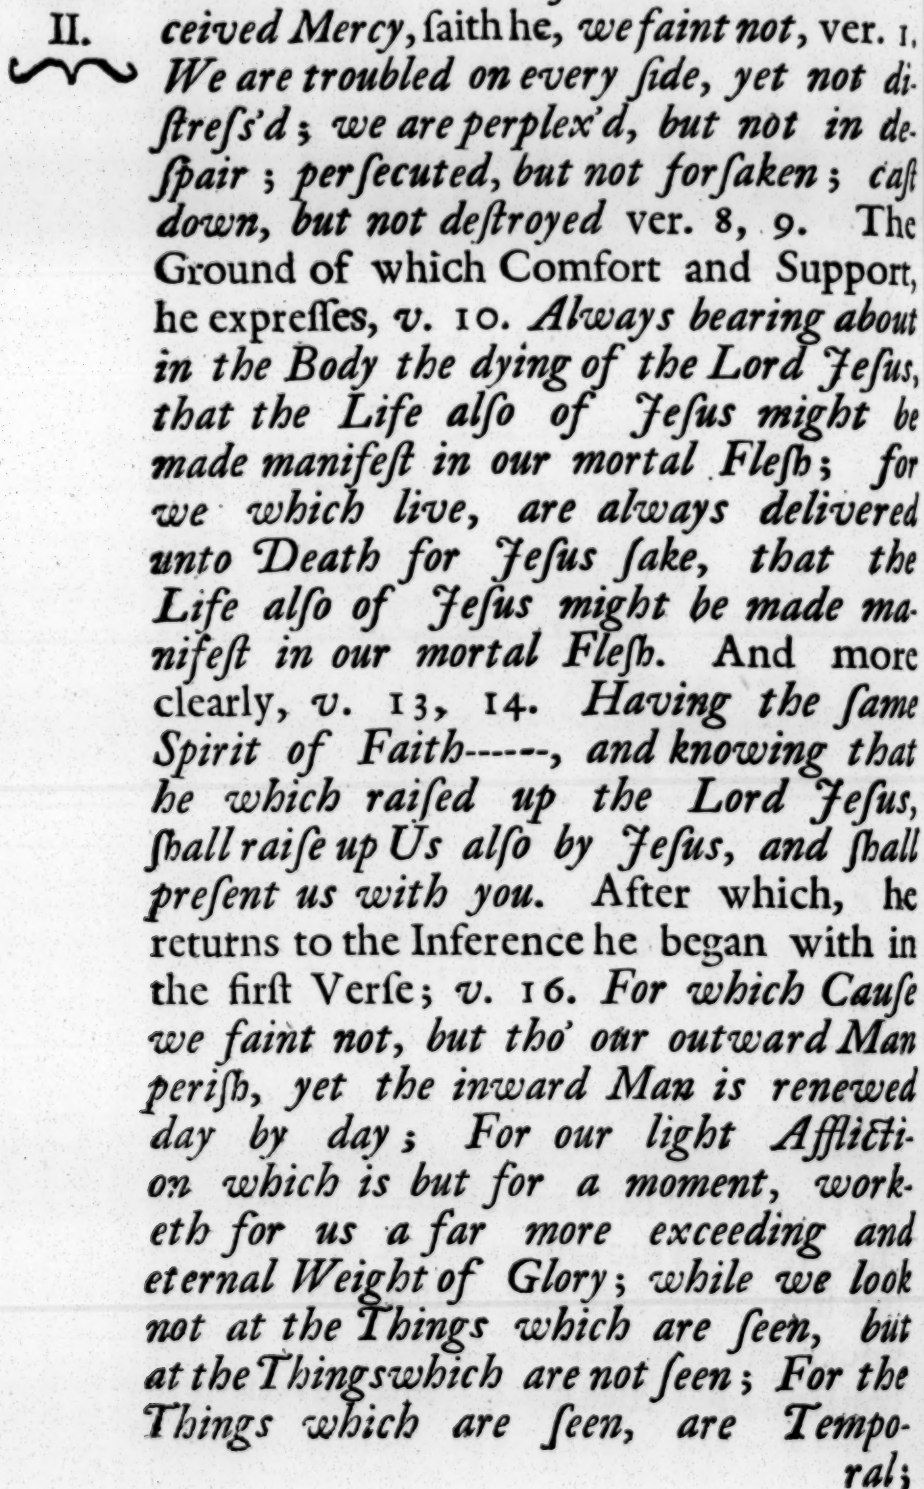 II.
ceived Mercy, ſaith he, we faint not, ver. 1.
We are troubled on every ſide, yet not di-
ſtreſs'd; we are perplex'd, but not in de-
ſpair; perſecuted, but not forſaken; caſt
down, but not deſtroyed ver. 8, 9. The
Ground of which Comfort and Support,
he expreſſes, v. 10. Always bearing about
in the Body the dying of the Lord Jeſus,
that the Life alſo of Jeſus might be
made manifeſt in our mortal Fleſh; for
we which live, are always delivered
unto Death for Jeſus ſake, that the
Life alſo of Jeſus might be made ma-
nifeſt in our mortal Fleſh. And more
clearly, v. 13, 14. Having the ſame
Spirit of Faith------, and knowing that
he which raiſed up the Lord Jeſus,
ſhall raiſe up Us alſo by Jeſus, and ſhall
preſent us with you. After which, he
returns to the Inference he began with in
the firſt Verſe; v. 16. For which Cauſe
we faint not, but tho' our outward Man
periſh, yet the inward Man is renewed
day by day; For our light Afflicti-
on which is but for a moment, work-
eth for us a far more exceeding and
eternal Weight of Glory; while we look
not at the Things which are ſeen, but
at the Things which are not ſeen; For the
Things which are ſeen, are Tempo-
ral;